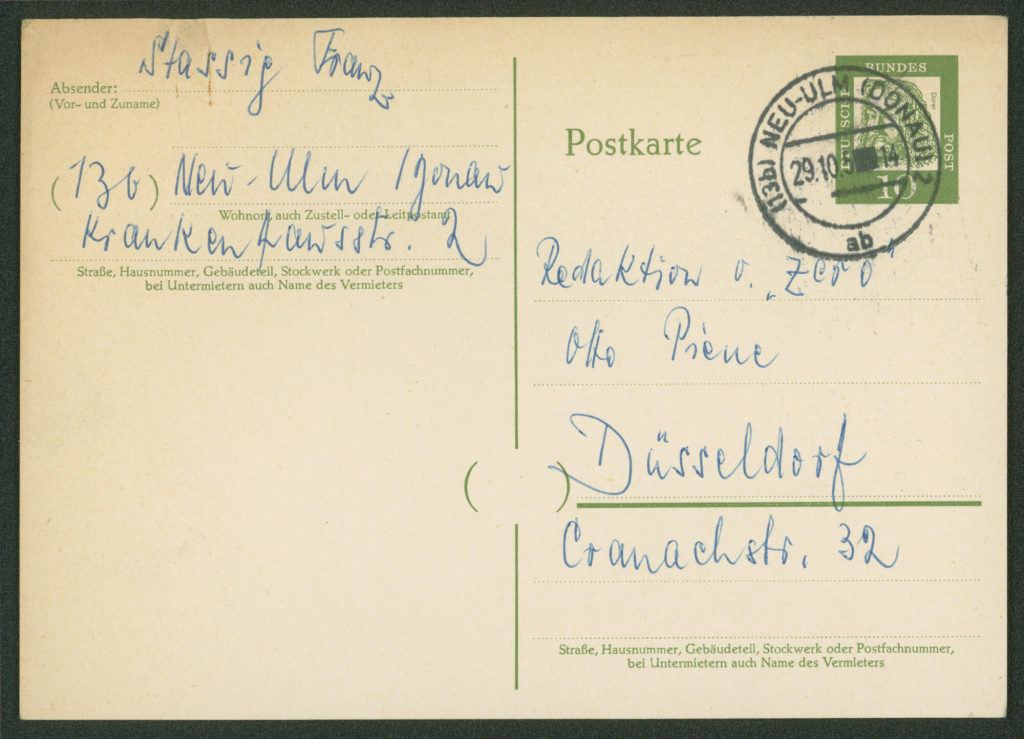 Stassig Franz
Absender:
(Vor- und Zuname)
(13b) Neu-Ulm /Donau
Wohnort, auch Zustell- oder Leitpostamt
Krankenhausstr. 2
Straße, Hausnummer, Gebäudeteil, Stockwerk oder Postfachnummer,
bei Untermietern auch Name des Vermieters
Postkarte
BUNDES
POST
Dürer
10
(13b) NEU-ULM (DONAU) 2
29.10.
14
ab
Redaktion v. „Zero“
Otto Piene
Düsseldorf
Cranachstr. 32
Straße, Hausnummer, Gebäudeteil, Stockwerk oder Postfachnummer,
bei Untermietern auch Name des Vermieters